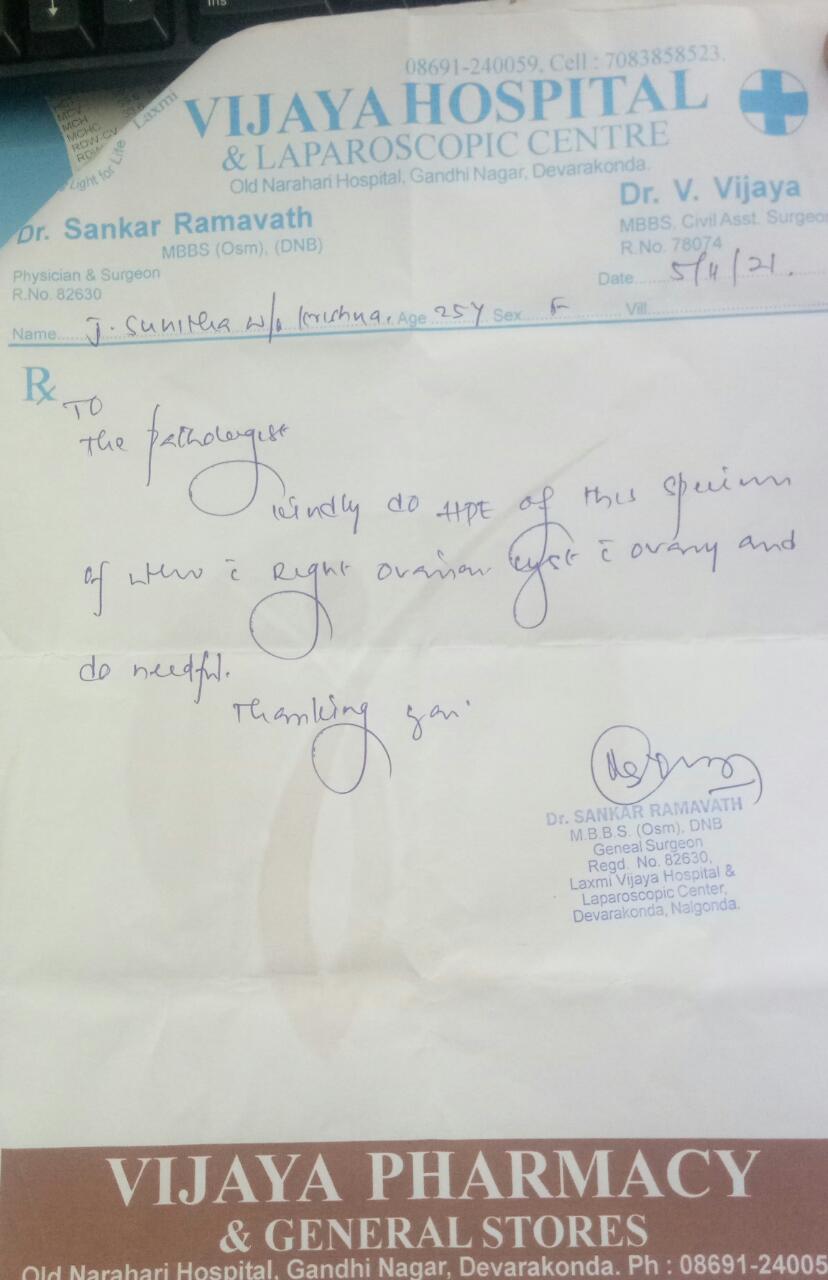 Ins
MCV
MCH
MCHC
RDW-CV
Light for Life
Laxmi
08691-240059, Cell : 7083858523.
VIJAYA HOSPITAL
& LAPAROSCOPIC CENTRE
Old Narahari Hospital, Gandhi Nagar, Devarakonda.
Dr. Sankar Ramavath
MBBS (Osm), (DNB)
Physician & Surgeon
R.No. 82630
Dr. V. Vijaya
MBBS, Civil Asst. Surgeon
R.No. 78074
Date 5/4/21.
Name J. Sunitha w/o Krishna. Age 25Y Sex F Vill
Rx
To
The pathologist
kindly do HPE of this specimen
of c̄ Right ovarian cyst c̄ ovary and
do needful.
Thanking you
Dr. SANKAR RAMAVATH
M.B.B.S. (Osm), DNB
Geneal Surgeon
Regd. No. 82630,
Laxmi Vijaya Hospital &
Laparoscopic Center,
Devarakonda, Nalgonda.
VIJAYA PHARMACY
& GENERAL STORES
Old Narahari Hospital, Gandhi Nagar, Devarakonda. Ph : 08691-24005